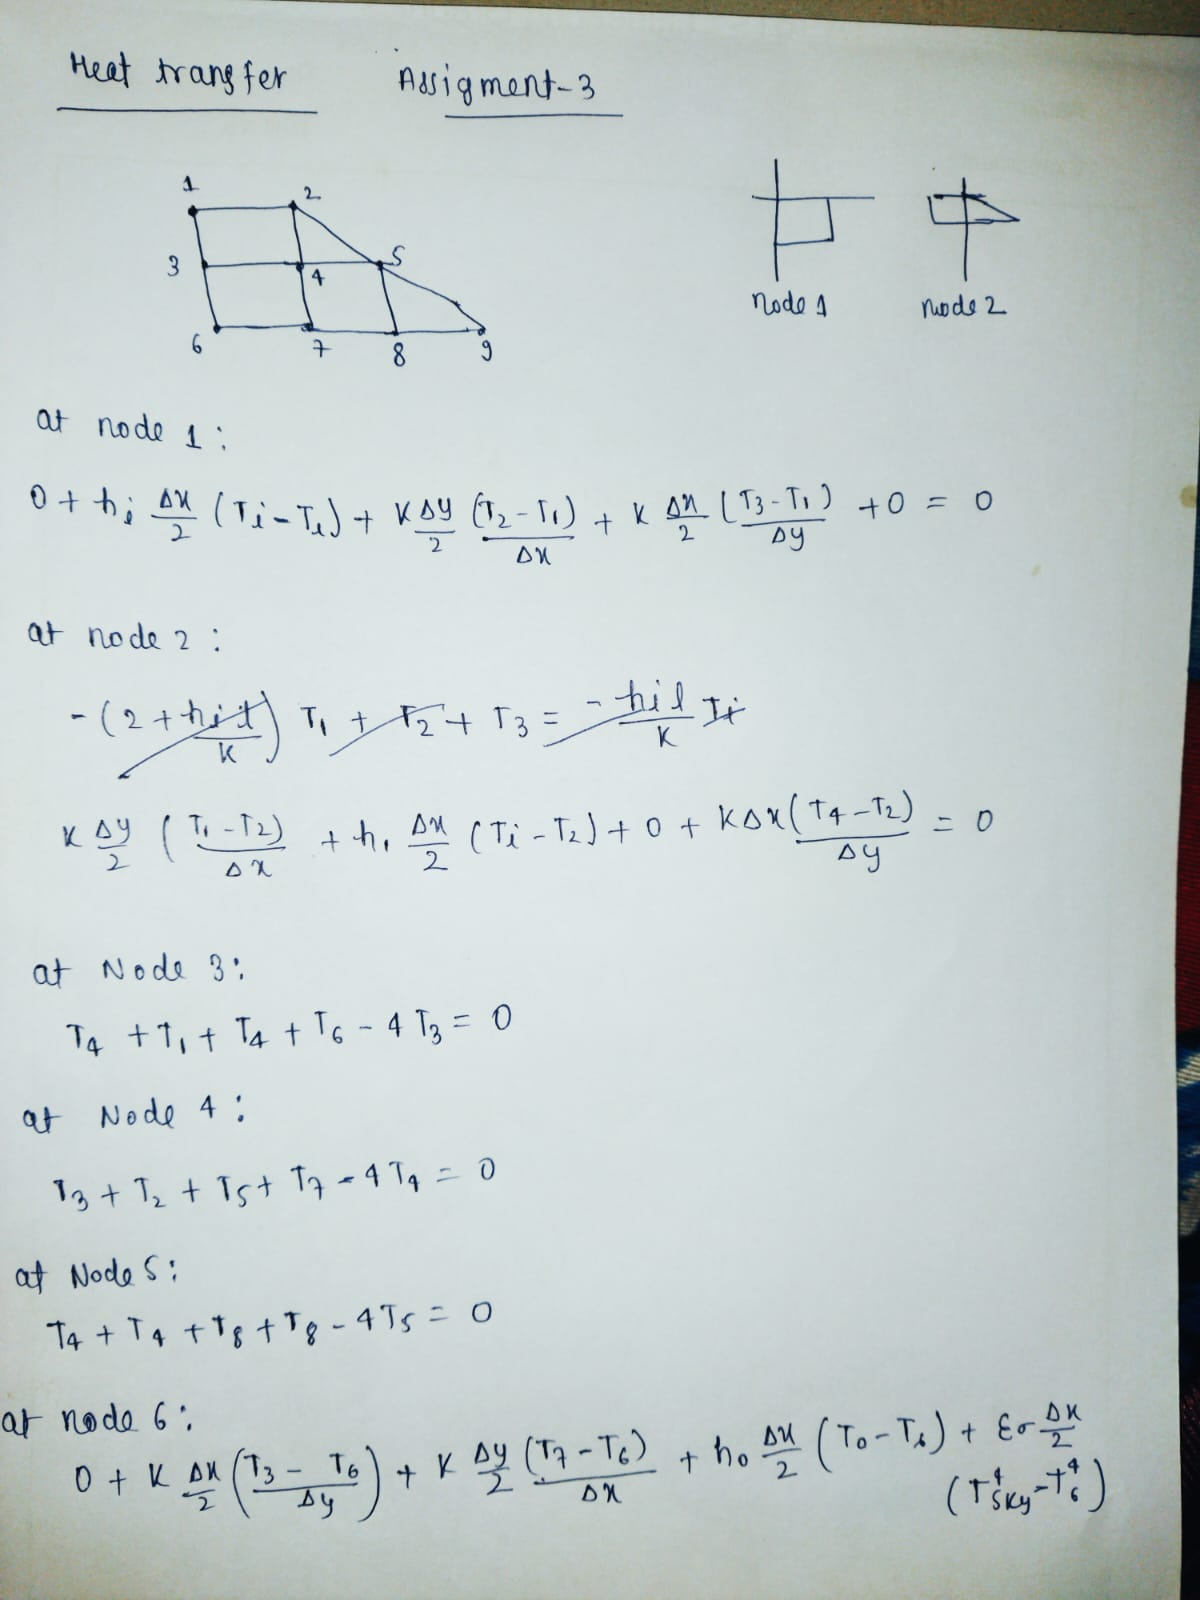 Heat transfer Assigment-3
1 2
3 4 5
6 7 8 9
node 1 node 2
at node 1 :
0 + hi Δx/2 (Ti - T1) + K Δy/2 (T2 - T1)/Δx + K Δx/2 (T3 - T1)/Δy + 0 = 0
at node 2 :
- (2 + hil/K) T1 + T2 + T3 = - hil/K Ti
K Δy/2 (T1 - T2)/Δx + hi Δx/2 (Ti - T2) + 0 + KΔx (T4 - T2)/Δy = 0
at Node 3:
T4 + T1 + T4 + T6 - 4 T3 = 0
at Node 4 :
T3 + T2 + T5 + T7 - 4 T4 = 0
at Node 5 :
T4 + T4 + T8 + T8 - 4T5 = 0
at node 6 :
0 + K Δx/2 (T3 - T6/Δy) + K Δy/2 (T7 - T6)/Δx + ho Δx/2 (To - T6) + εσ Δx/2
(T⁴sky - T⁴6)